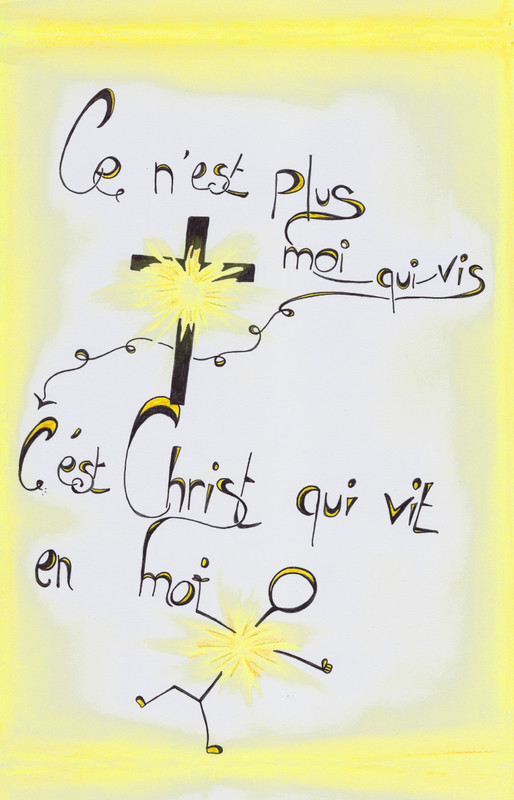 Ce n'est plus
moi qui vis
C'est Christ qui vit
en moi